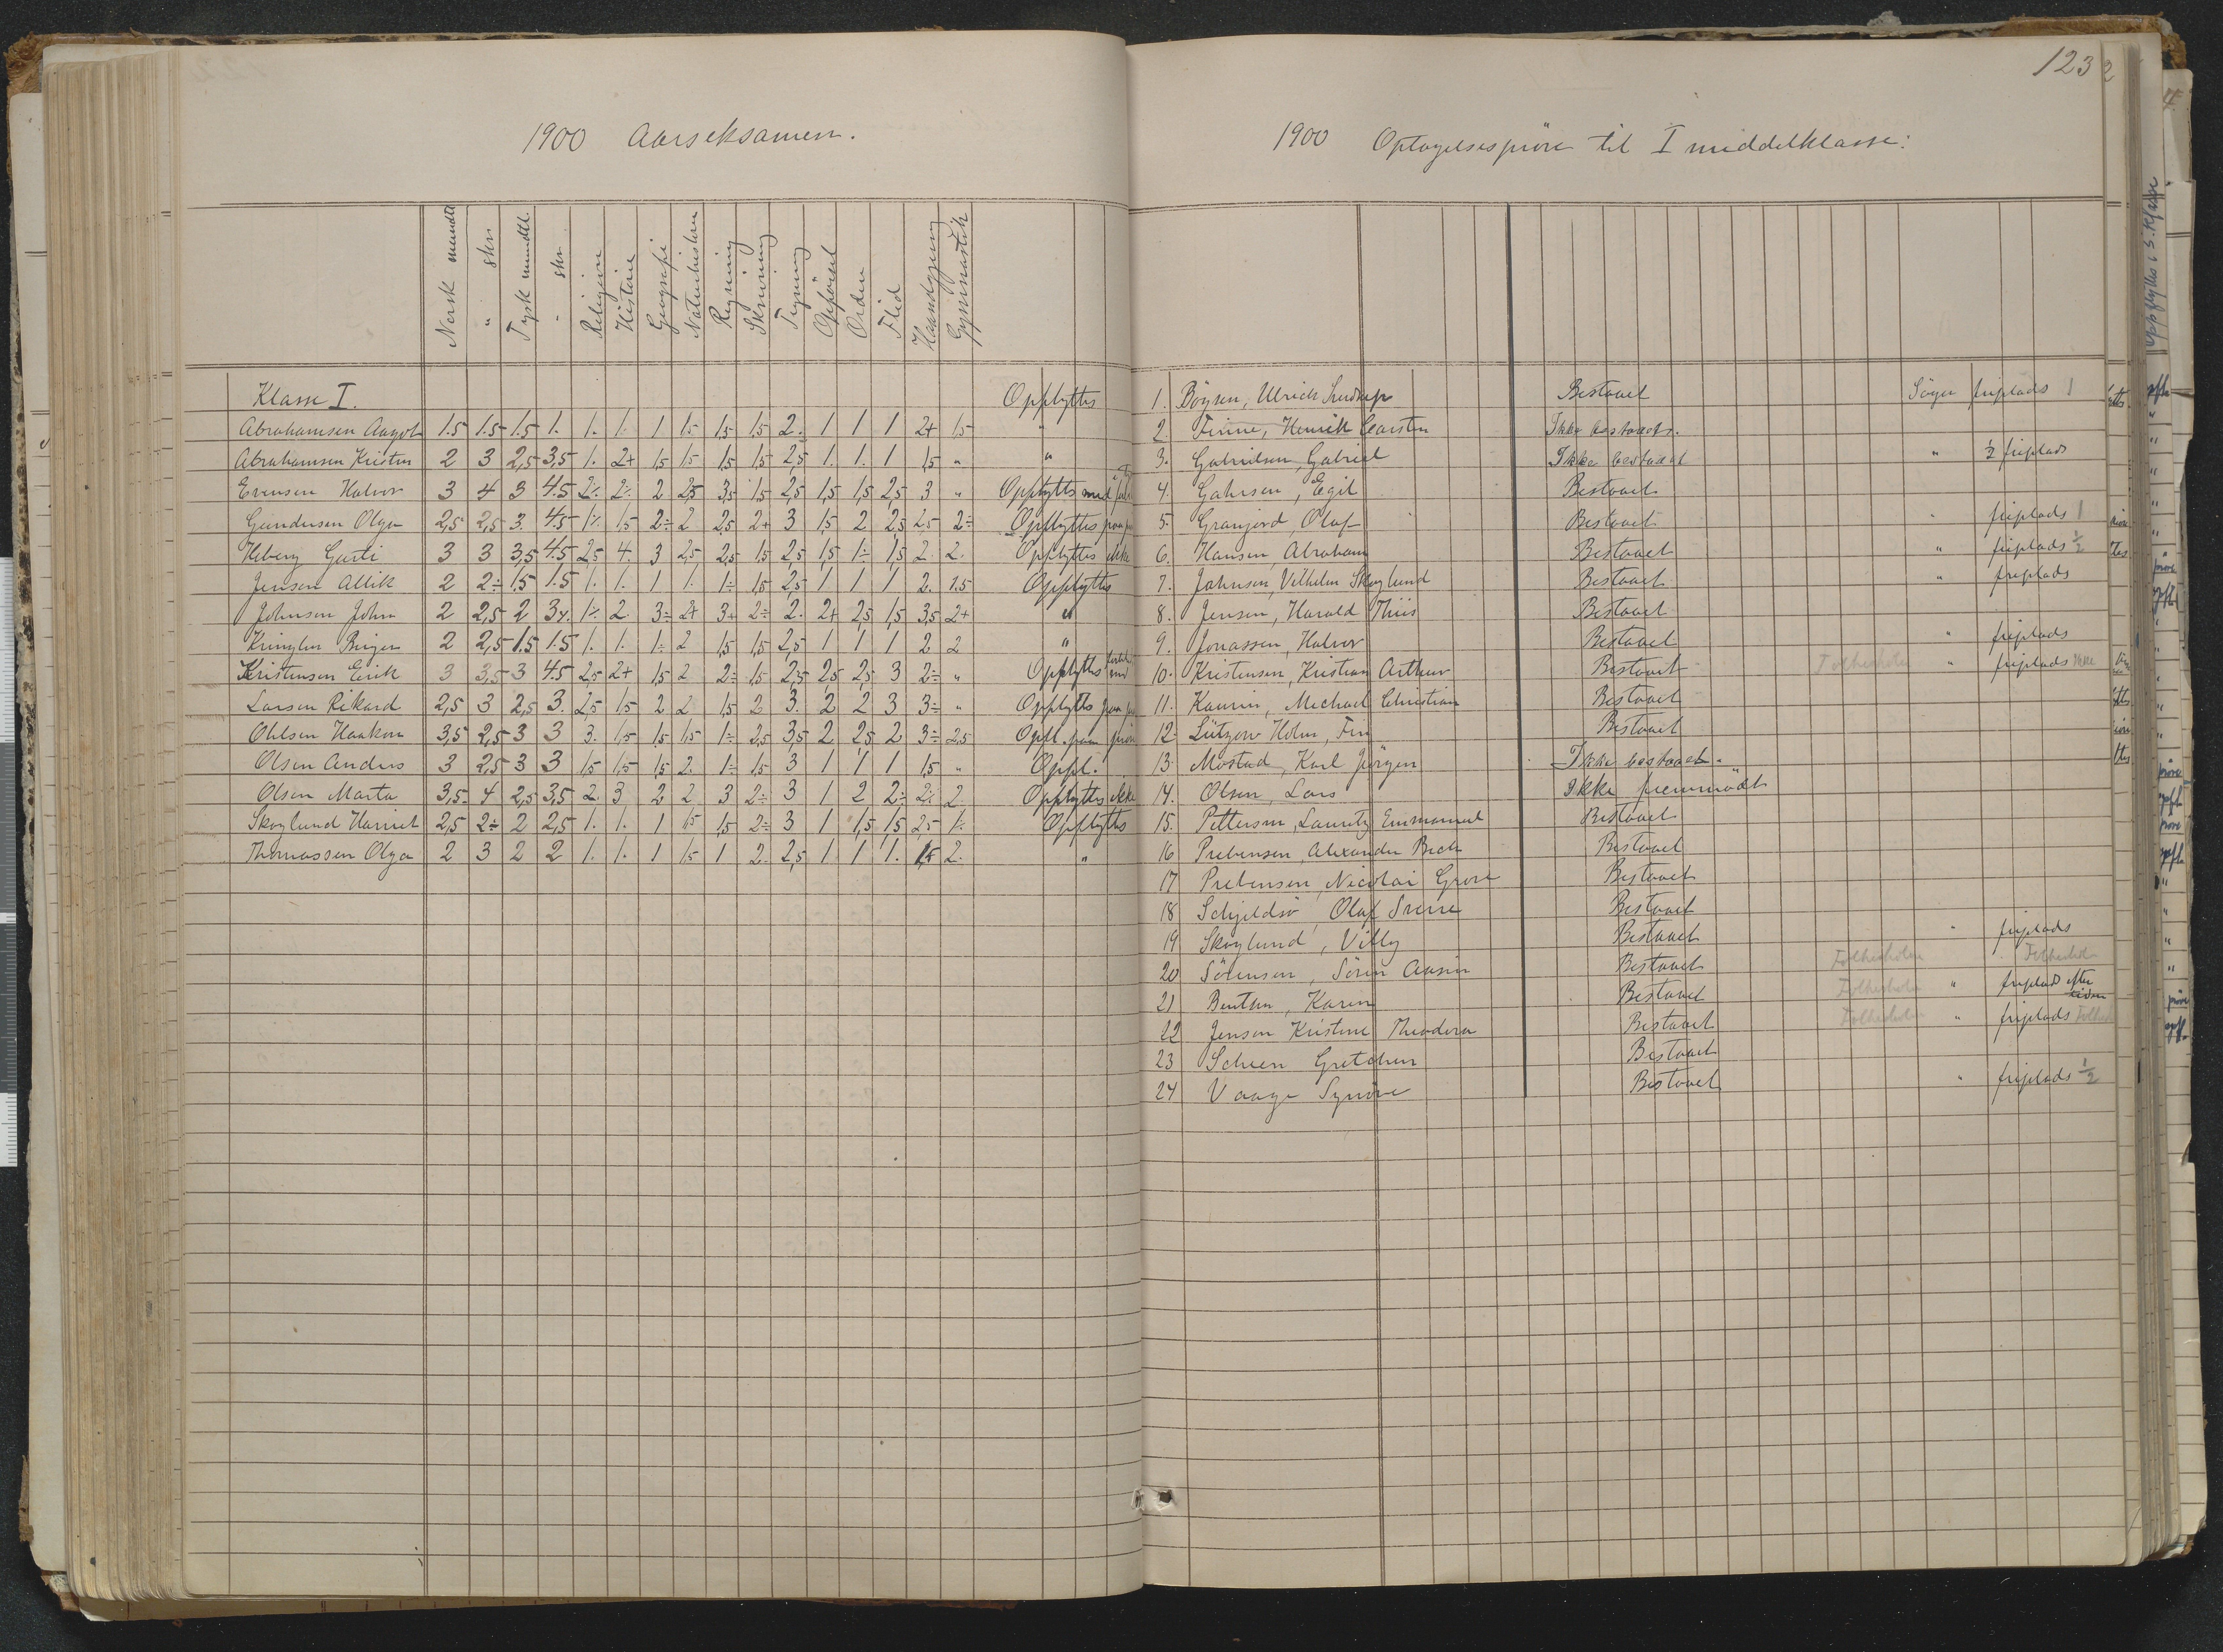 1900 Aarseksamen.
Norsk mundtl.
" skr.
Tysk mundtl.
" skr.
Religion
Historie
Geografi
Naturhistorie
Regning
Skrivning
Tegning
Opførsel
Orden
Flid
Haandgjerning
Gymnastik
Klasse I. Opflyttes
Abrahamsen Aagot 1.5 1.5 1.5 1. 1. 1. 1 1.5 1,5 1,5 2. 1 1 1 2+ 1,5 "
Abrahamsen Kristen 2 3 2,5 3,5 1. 2+ 1,5 1,5 1,5 1,5 2,5 1. 1. 1 1,5 " "
Evensen Halvor 3 4 3 4.5 2÷ 2÷ 2 2,5 3,5 1,5 2,5 1,5 1,5 2,5 3 " Opflyttes med
Gundersen Olga 2,5 2,5 3. 4.5 1÷ 1,5 2÷ 2 2,5 2+ 3 1,5 2 2,5 2,5 2÷ Opflyttes paa
Heberg Gusti 3 3 3,5 4.5 2,5 4. 3 2,5 2,5 1,5 2,5 1,5 1÷ 1,5 2. 2. Opflyttes ikke
Jensen Allik 2 2÷ 1.5 1.5 1. 1. 1 1. 1÷ 1,5 2,5 1 1 1 2. 1.5 Opflyttes
Johnsen John 2 2,5 2 3÷ 1÷ 2. 3÷ 2+ 3+ 2÷ 2. 2+ 2,5 1,5 3,5 2+ "
Kringlen Birger 2 2,5 1.5 1.5 1. 1. 1÷ 2 1,5 1,5 2,5 1 1 1 2 2 "
Kristensen Erik 3 3,5 3 4.5 2,5 2+ 1,5 2 2÷ 1,5 2,5 2,5 2,5 3 2÷ " Opflyttes med
Larsen Rikard 2,5 3 2,5 3. 2,5 1,5 2 2 1,5 2 3. 2 2 3 3÷ " Opflyttes paa
Ohlsen Haakon 3,5 2,5 3 3 3. 1,5 1,5 1,5 1÷ 2,5 3,5 2 2,5 2 3÷ 2,5 Opfl. paa prøve
Olsen Anders 3 2,5 3 3 1,5 1,5 1,5 2. 1÷ 1,5 3 1 1 1 1,5 " Oppl.
Olsen Marta 3,5 4 2,5 3,5 2. 3 2 2 3 2÷ 3 1 2 2÷ 2÷ 2 Opflyttes ikke
Skoglund Harriet 2,5 2÷ 2 2,5 1. 1. 1 1,5 1,5 2÷ 3 1 1,5 1,5 2,5 1÷ Opflyttes
Thomassen Olga 2 3 2 2 1. 1. 1 1,5 1 2. 2,5 1 1 1. 1,5 2. "
123
1900 Optagelsesprøve til I middelklasse:
1. Böysen, Ulrich Bestaaet Söger friplads 1
2. Finne, Henrik Carsten Ikke bestaaet.
3. Gabrielsen, Gabriel Ikke bestaaet " ½ friplads
4. Gahrsen, Egil Bestaaet
5. Granjord, Olaf Bestaaet " friplads 1
6. Hansen, Abraham Bestaaet " friplads ½
7. Johnsen, Vilhelm Skoglund Bestaaet " friplads
8. Jensen, Harald Thiis Bestaaet
9. Jonassen, Halvor Bestaaet " friplads
10. Kristensen, Kristian Arthur Bestaaet Folkeskolen " friplads ikke
11. Kaurin, Michael Christian Bestaaet
12. Lützow Holm, Finn Bestaaet
13. Mostad, Karl Jørgen Ikke bestaaet.
14. Olsen, Lars Ikke fremmödt
15. Pettersen, Lauritz Emmanuel Bestaaet
16 Prebensen, Alexander Bech Bestaaet
17 Prebensen, Nicolai Grove Bestaaet
18 Schjeldsö, Olaf Sverre Bestaaet
19 Skoglund, Villy Bestaaet " friplads
20 Sörensen, Sören Bestaaet Folkeskolen " Folkeskolen
21 Bentsen, Karen Bestaaet Folkeskolen " friplads efter
22 Jensen Kristine Theodora Bestaaet Folkeskolen " friplads
23 Scheen Gretchen Bestaaet
24 Vaage Synöve Bestaaet " friplads ½
Opflyttes i 3. Klasse